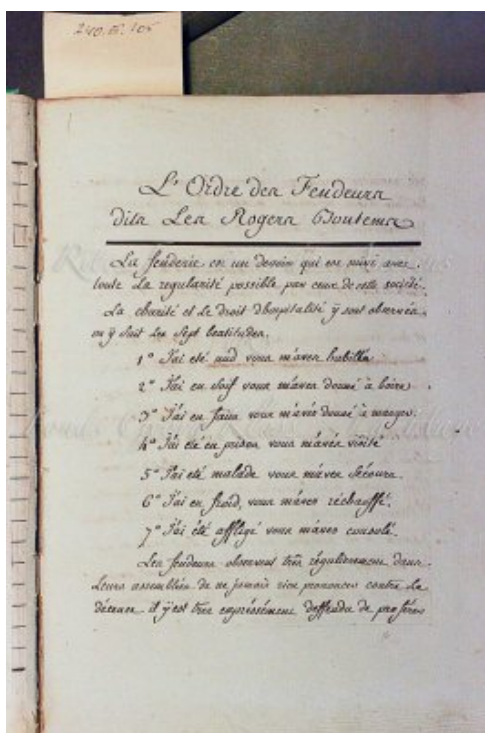 240.E.105
L'Ordre des Fendeurs
dits Les Rogers Boutems
La fenderie est un dessin qui est suivi avec
toute La regularité possible par ceux de cette société.
La charité et Le droit d'hospitalité ÿ sont observés
on ÿ suit Les Sept beatitudes.
1° J'ai eté nud vous m'avez habillé
2° J'ai eu soif vous m'avez donné à boire.
3° J'ai eu faim vous m'avés donné à manger.
4° J'ai eté en prison vous m'avez visité
5° J'ai eté malade vous m'avez Secouru.
6° J'ai eu froid, vous m'avez réchauffé.
7° J'ai été affligé vous m'avez consolé.
Les fendeurs observent très régulierement dans
Leurs assemblées de ne jamais rien prononcer contre La
décence. il ÿ est très expréssément deffendu de proférer